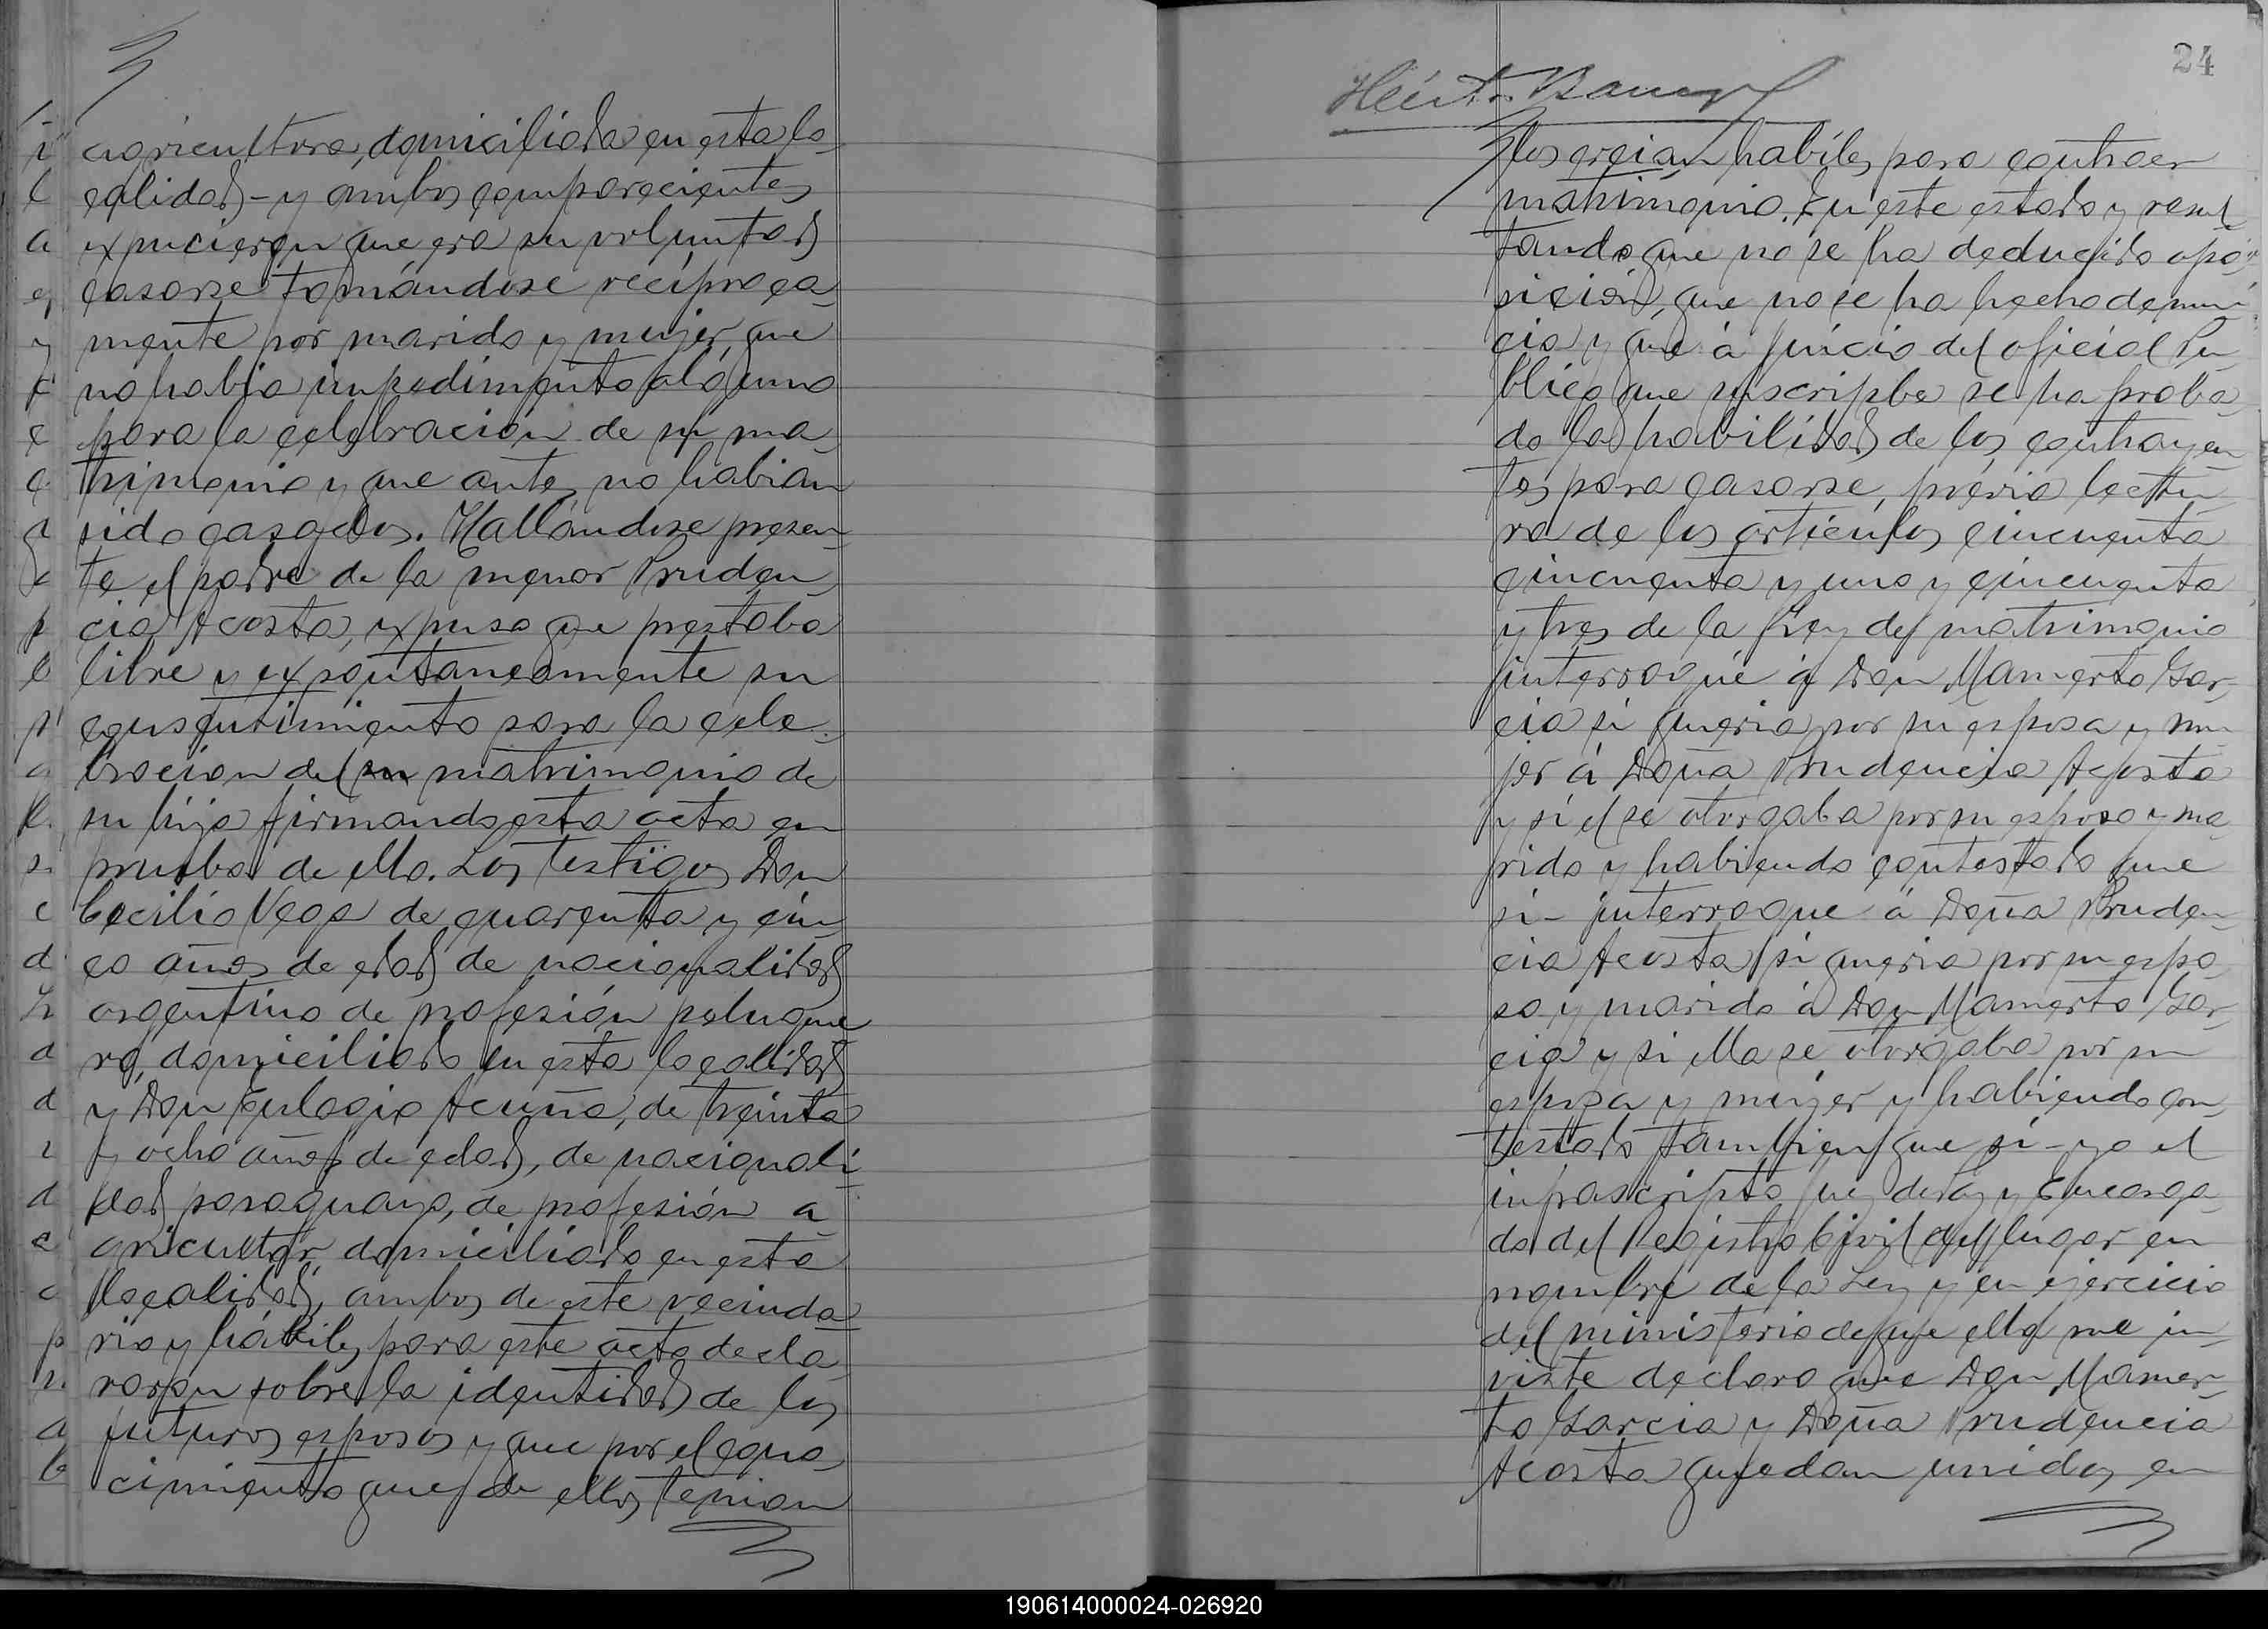 agricultora, domiciliada en esta lo
calidad - y ambos comparecientes
expucieron que era su voluntad
casarse tomándose recíproca
mente por marido y mujer, que
no habia impedimento alguno
para la celebración de su ma
trimonio y que antes no habian
sido casados. Hallándose presen
te el padre de la menor Pruden
cia Acosta, expuso que prestaba
libre y expontaneamente su
consentimiento para la cele
bracion del matrimonio de
su hija firmando esta acta en
prueba de ello. Los testigos Don
Cecilio Vega de cuarenta y cin
co años de edad de nacionalidad
argentino de profesión peluque
ro, domiciliado en esta localidad
y Don Eulogio Acuña, de treinta
y ocho años de edad, de nacionali
dad paraguayo, de profesión a
gricultor, domiciliado en esta
localidad, ambos de este vecinda
rio y hábiles para este acto decla
raron sobre la identidad de los
futuros esposos y que por el cono
cimiento que de ellos tenian
24
Héctor
los creian habíles para contraer
matrimonio. En este estado y resul
tando que no se ha deducido opo
sición, que no se ha hecho denun
cia y que á juicio del oficial Pu
blico que suscripbe se ha proba
do la habilidad de los contrayen
tes para casarse, prévia lectu
ra de los artículos cincuenta
cincuenta y uno y cincuenta
y tres de la Ley del matrimonio
interrogué á Don Mamerto Gar
cia si queria por su esposa y mu
jer á Doña Prudencia Acosta
y si el se otorgaba por su esposo y ma
rido y habiendo contestado que
si - interrogue á Doña Pruden
cia Acosta si queria por su espo
so y marido á Don Mamerto Gar
cia y si ella se otorgaba por su
esposa y mujer y habiendo con
testado tambien que si - yo el
infrascripto Juez de Paz y Encarga
do del Registro Civil del lugar en
nombre de la Ley y en ejercicio
del ministerio de que ella me in
viste declaro que Don Mamer
to Garcia y Doña Prudencia
Acosta quedan unidos en
190614000024-026920